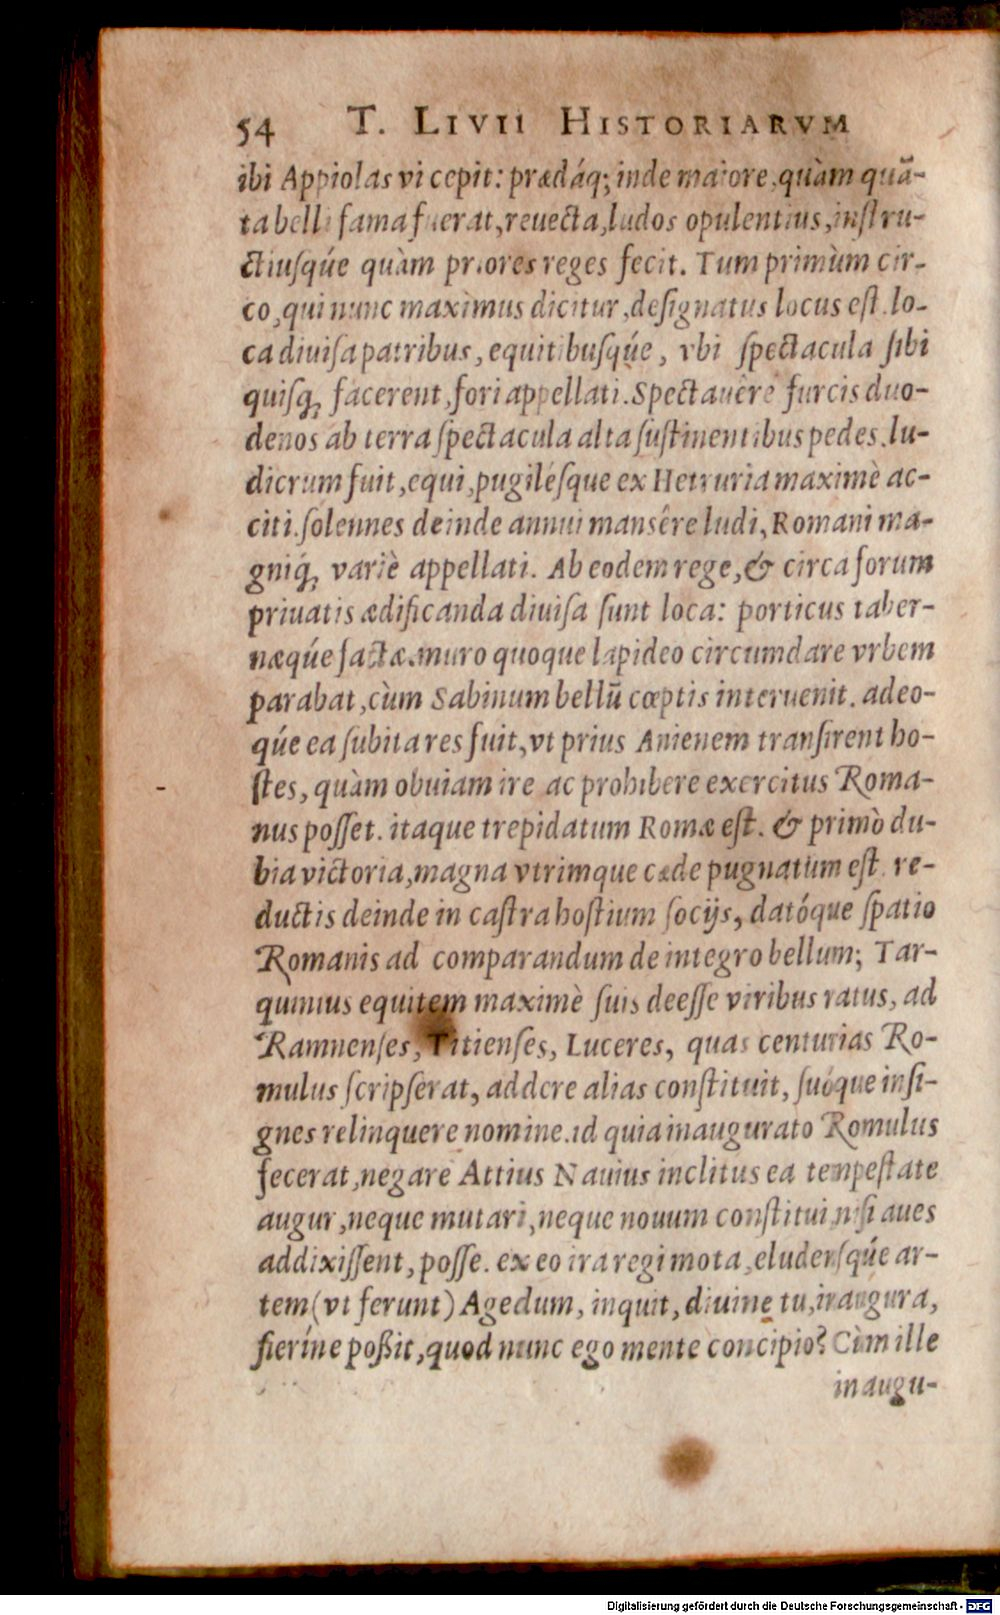 54 T. LIVII HISTORIARVM
ibi Appiolas vi cepit: prædáq; inde maiore, quàm quā-
ta belli fama fuerat, reuecta, ludos opulentius, instru-
ctiusqúe quàm priores reges fecit. Tum primùm cir-
co, qui nunc maximus dicitur, designatus locus est. lo-
ca diuisa patribus, equitibusqúe, vbi spectacula sibi
quisq; facerent, fori appellati. Spectauêre furcis duo-
denos ab terra spectacula alta sustinentibus pedes. lu-
dicrum fuit, equi, pugilésque ex Hetruria maximè ac-
citi. solennes deinde annui mansêre ludi, Romani ma-
gniq́; variè appellati. Ab eodem rege, & circa forum
priuatis ædificanda diuisa sunt loca: porticus taber-
næqúe factæ. muro quoque lapideo circumdare vrbem
parabat, cùm Sabinum bellū cœptis interuenit. adeo-
qúe ea subita res fuit, vt prius Anienem transirent ho-
stes, quàm obuiam ire ac prohibere exercitus Roma-
nus posset. itaque trepidatum Romæ est. & primò du-
bia victoria, magna vtrimque cæde pugnatum est. re-
ductis deinde in castra hostium socijs, datóque spatio
Romanis ad comparandum de integro bellum; Tar-
quinius equitem maximè suis deesse viribus ratus, ad
Ramnenses, Titienses, Luceres, quas centurias Ro-
mulus scripserat, addere alias constituit, suóque insi-
gnes relinquere nomine. id quia inaugurato Romulus
fecerat, negare Attius Nauius inclitus ea tempestate
augur, neque mutari, neque nouum constitui, nisi aues
addixissent, posse. ex eo ira regi mota, eludensqúe ar-
tem (vt ferunt) Agedum, inquit, diuine tu, inaugura,
fieríne poßit, quod nunc ego mente concipio? Cùm ille
inaugu-
Digitalisierung gefördert durch die Deutsche Forschungsgemeinschaft - DFG